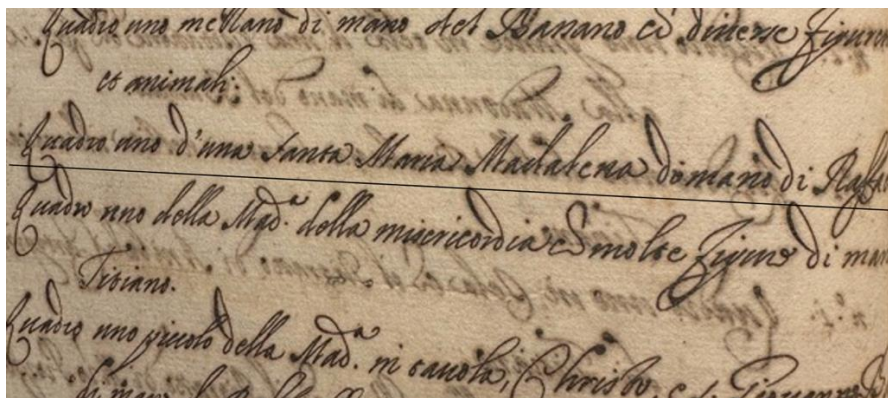 Quadro uno mezzano di mano del Bassano cō diverse figure
et animali:
Quadro uno d'una santa Maria Madalena di mano di Raffa
Quadro uno della Mad.ᵃ della misericordia cō molte figure di man
Titiano.
Quadro uno piccolo della Mad.ᵃ in tavola, Christo, e S. Giovanni
di mano